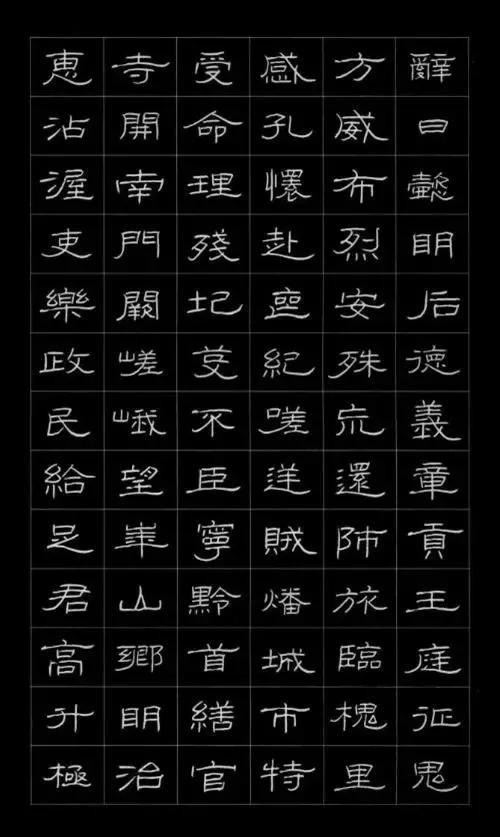 辭曰懿明后德義章貢王庭征鬼
方威布烈安殊巟還師旅臨槐里
感孔懷赴喪紀嗟逆賊燔城市特
受命理殘圮芟不臣寧黔首繕官
寺開南門闕嵯峨望崋山鄉明治
惠沾渥吏樂政民給足君高升極